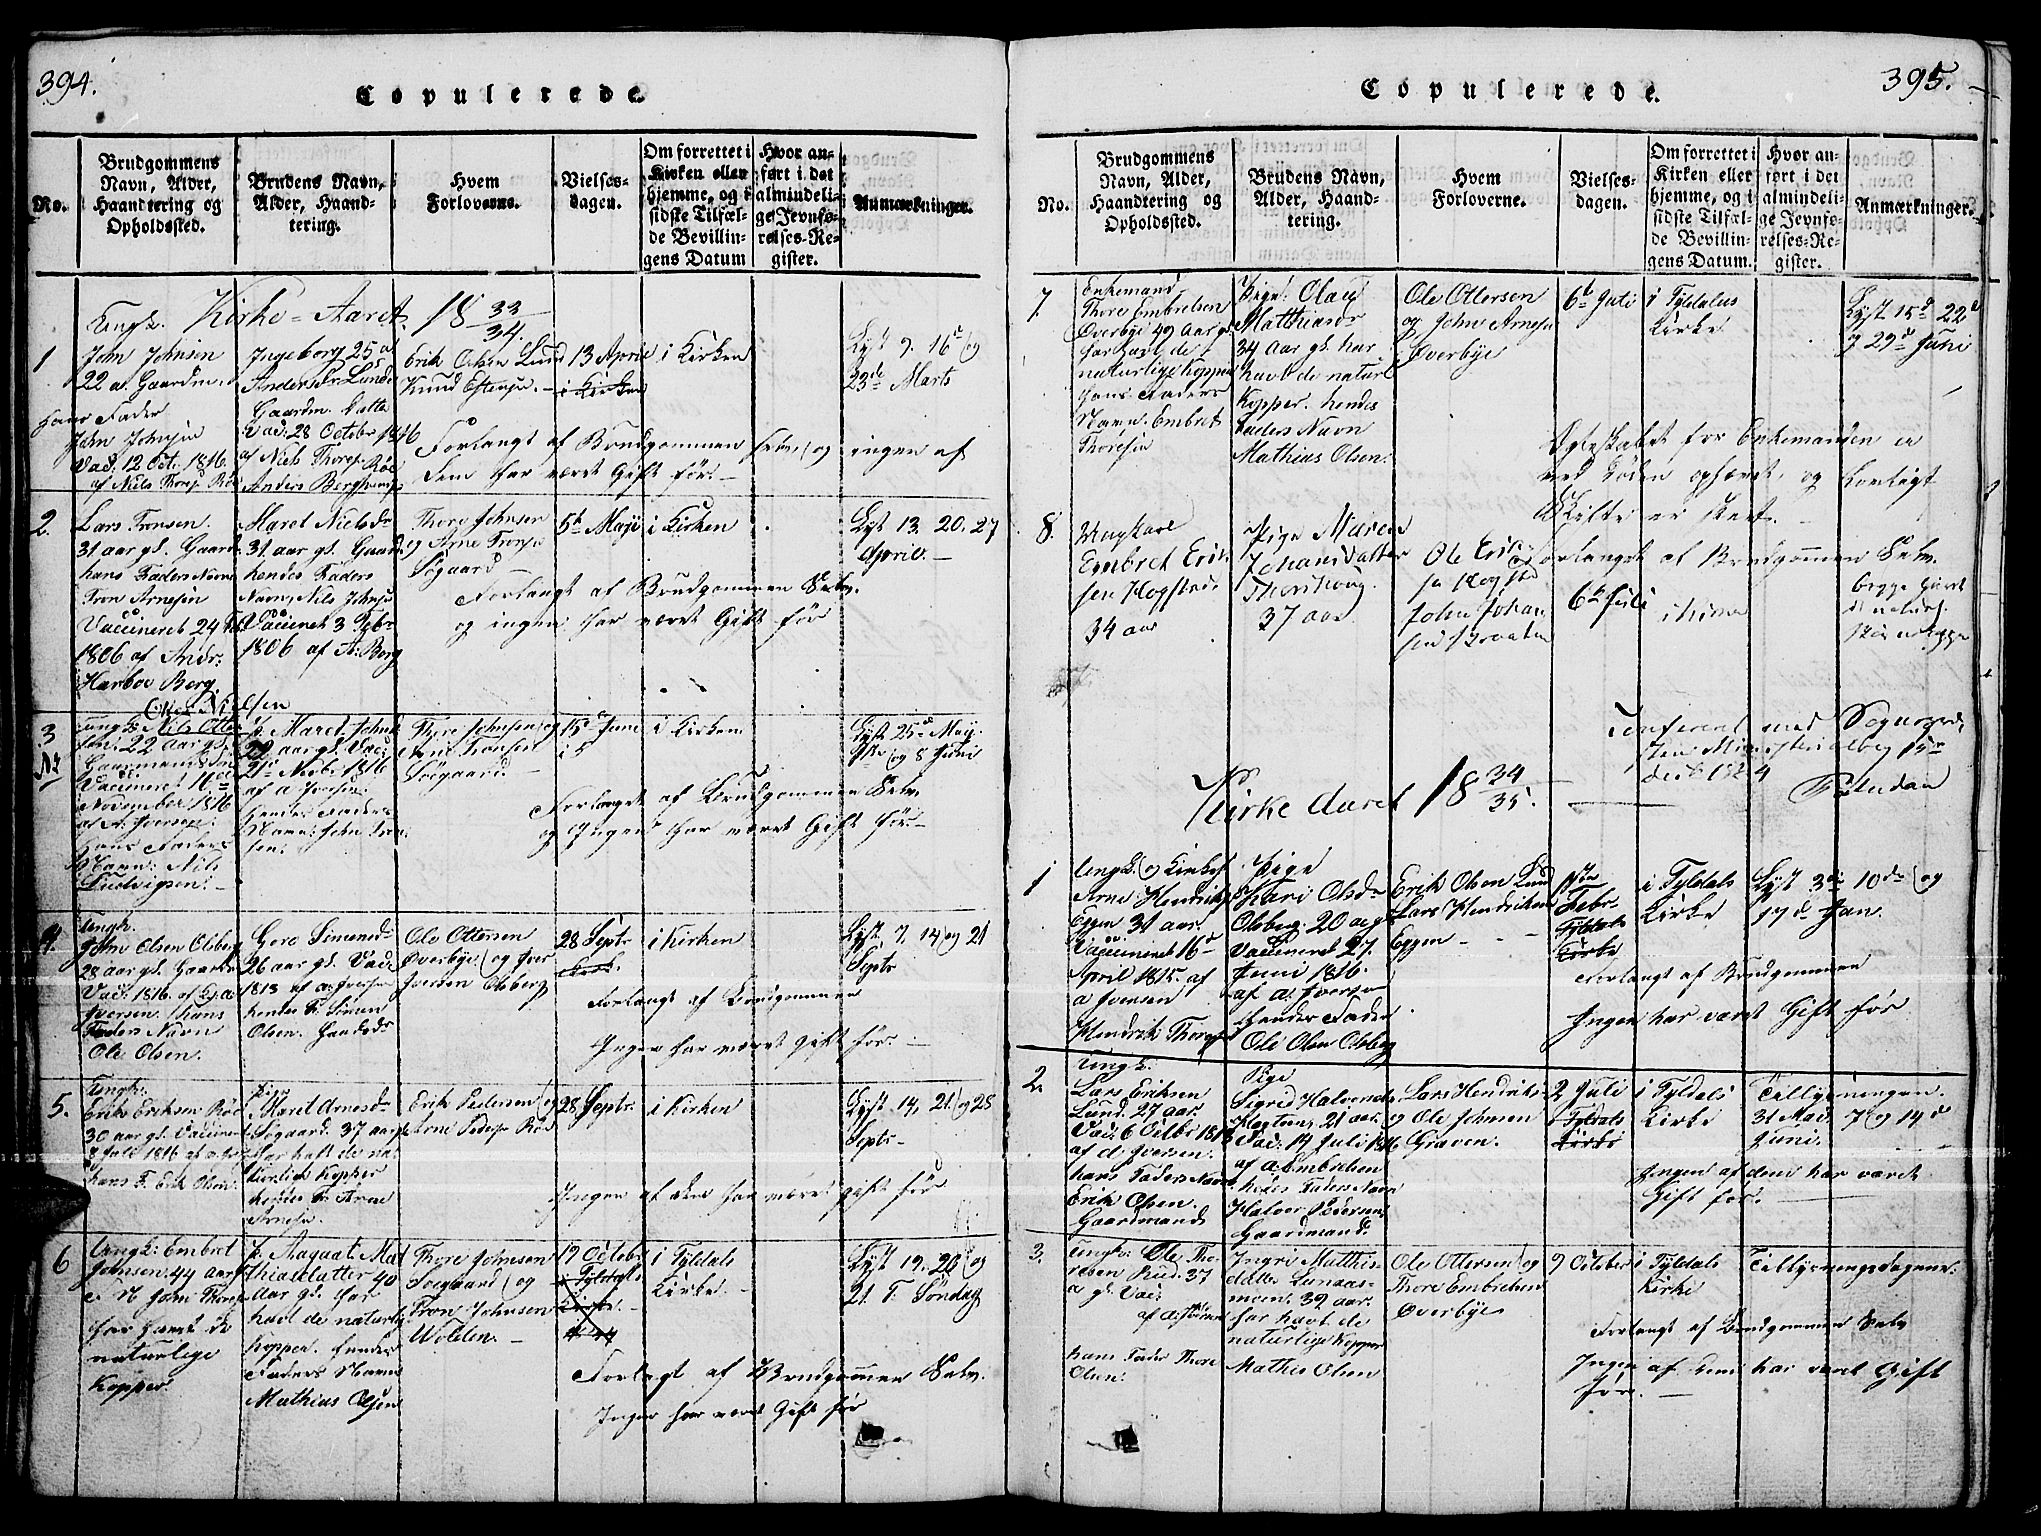 394.
Copulerede.
No.
Brudgommens
Navn, Alder,
Haandtering og
Opholdssted.
Brudens Navn,
Alder, Haand-
tering.
Hvem
Forloverne.
Vielses-
dagen.
Om forrettet i
Kirken eller
hjemme, og i
sidste Tilfæl-
de Bevillin-
gens Datum
Hvor an-
ført i det
almindeli-
ge Jevnfø-
relses-Re-
gister.
Anmærkninger.
Ungk. Kirke-Aaret 18 33/34
1
John Johnsen
22 a. Gaardm.
Hans Fader
John Johnsen
Vac. 12 Oct. 1816.
af Niels Thorsp. Røe
Ingeborg 25 a
Andersdr Lunde
Gaardm. Datter
Vac. 28 October 1816
af Niels Thoresp. Røe
Anders Bergs
Erik Olsen Lund
Knud Estensen.
13 April
i Kirken
i Kirken
Lyst 9. 16de og
23de Marts
Forlangt af Brudgommen selv, og ingen af
Dem har været Gift før. -
2.
Lars Tronsen
31 aar gl. Gaard
hans Faders Navn
Tron Arnesen
Vaccineret 24 Feb
1806 af Andr.
Harboe Berg
Maret Nielsdr
31 aar gl. Gaard
hendes Faders
Navn, Nils Johnsen
Vaccinet 3 Febr
1806 af A. Berg
Thore Johnsen
og Arne Tronsen
Søgaard -
5te Maji
i Kirken
Lyst 13. 20. 27
April. -
Forlangt af Brudgommen Selv.
og ingen har været Gift før
Otter Nielsen
3
Ungk. Nils Otter
sen 22 aar gl.
Gaarmands Søn
Vaccineret 11de
November 1816
af A. Iversen.
Hans Faders
Navn: Nils
Ludvigsen. -
P. Maret Johns
22 aar gl. Vac.
21de Novbr 1816
af a Iversen
Hendes Faders
Navn: John Tron
sen.
Thore Johnsen og
Arne Tronsen
Søegaard -
15de Juni
i Kirken
Lyst 25de May.
1ste og 8 Juni
Forlangt af Brudgommen Selv.
og Ingen har været Gift før. -
4.
Ungk.
John Olsen Olsberg
28 aar gl. Gaardm
Vac. 1816. af
Iversen. hans
Faders Navn
Ole Olsen.
Gero Simensd
26 aar gl. Vac.
1813 af a. Iversen
hendes F. Simen
Olsen.
Ole Ottersen
Øverbye og Iver
Iversen Olsberg
28 Septr
i Kirken
Lyst 7. 14 og 21
Septr
Forlangt af Brudgommen
Ingen har været gift før. -
5.
Ungk:
Erik Eriksen Røe
30 aar gl. Vaccinet
Juli 1816 af
hans F. Erik Olsen
Pige
Maret Arnesd
Søgaard. 37 aar gl
har haft de na
turlige Kopper
hendes F. Arne
Arnesen.
Erik Pedersen og
Arne Pedersen Røe
28 Septr.
i Kirken
Lyst. 14, 21. og 28
Septr -
Ingen af dem har været gift før
6
Ungk: Embret
Johnsen. 44 aar
N John Thoresen
har havt de
naturlige
Kopper.
P. Aagaat Mat
thiasdatter 40
Aar gl. har
havt de naturlig
Kopper. hendes
Faders Navn
Mathias Olsen
Thore Johnsen
Søegaard og
Tron Johnsen
Wolden. -
19 Octobr
i Tyldals
Kirke. -
Lyst 19. 20 og
21. S. Søndag
Forlagt af Brudgommen Selv.
Ingen har været Gift før
395.
Copulerede.
No.
Brudgommens
Navn, Alder,
Haandtering og
Opholdssted.
Brudens Navn,
Alder, Haand-
tering.
Hvem
Forloverne.
Vielses-
dagen.
Om forrettet i
Kirken eller
hjemme, og i
sidste Tilfæl-
de Bevillin-
gens Datum.
Hvor an-
ført i det
almindeli-
ge Jevnfø-
relses-Re-
gister.
Anmærkninger.
7.
Enkemand
Thore Embretsen
Øverbye 49 Aar gl.
har havt de
naturlige Kopper
hans Faders
Navn. Embret
Thoresen
Pige: Olau
Matthiasdr
34 Aar gl. har
havt de naturl
Kopper. hendes
Faders Navn
Mathias Olsen.
Ole Ottersen
og John Arnesen
Øverbye
6te Juli
i Tyldalens
Kirke
Lyst 15de 22de
og 29de Juni
Ægteskabet for Enkemanden er
ved Døden ophævet, og Lovligt
Skifte er skeet. -
8.
Ungkarl
Embret Erik-
sen Hogstad
34 aar
Pige Maren
Johansdatter
37 aar
Ole Erik-
sen Hogstad
John Johan
sen Braaten
6te Juli
Forlanget af Brudgommen Selv.
begge havt
de naturl.
Conferert med Sogne
15de
Paludan
Kirke Aaret 18 34/35.
1
Ungk. og
Arne Hendriks
Eggen 31 aar.
Vaccineret 16de
April 1815. af
a Iversen
Hendrik Thores
Pige
Kari Olsdr
Olsberg. 20 a gl
Vaccineret 27.
Juni 1816.
af a. Iversen
hendes Fader
Ole Olsen Olsberg
Erik Olsen Lund
Lars Hendriksen
Eggen -
1ste
Febr
Tyldals
Kirke
i Tyldals
Kirke
Lyst 3die 10de og
17de Jan.
Forlangt af Brudgommen
Ingen har været Gift før
2.
Ungk.
Lars Eriksen
Lund. 27 aar.
Vac. 6 Octbr 1816
af a. Iversen.
hans Faders Navn
Erik Olsen.
Gaardmand
Pige
Sigrid Halvorsd
21 aar.
Vac. 14 Juli 1816
af a. Embretsen
hendes Faders Navn
Halvor Pedersen
Gaardmand.
Lars Hendriks
og Ole Johnsen
Graven.
2 Juli
Tyldals
Kirke
i Tyldals
Kirke
Tillysningen.
31 Mai, 7 og 14de
Juni.
Ingen af dem har været
Gift før.
3.
Ungk: Ole Tho
resen Rud. 37
a gl. Vac.
af a. Iversen
hans Fader Thore
Olsen.
Ingri Mathis
datter Lunaas-
moen. 39 aar.
har havt de
naturlige Kopper
Mathis Olsen
Ole Ottersen og
Thore Embretsen
Øverbye
9 October
i Tyldals
Kirke
Tillysningsdagene.
Forlangt af Brudgommen Selv
Ingen af dem har varet Gift
før. -